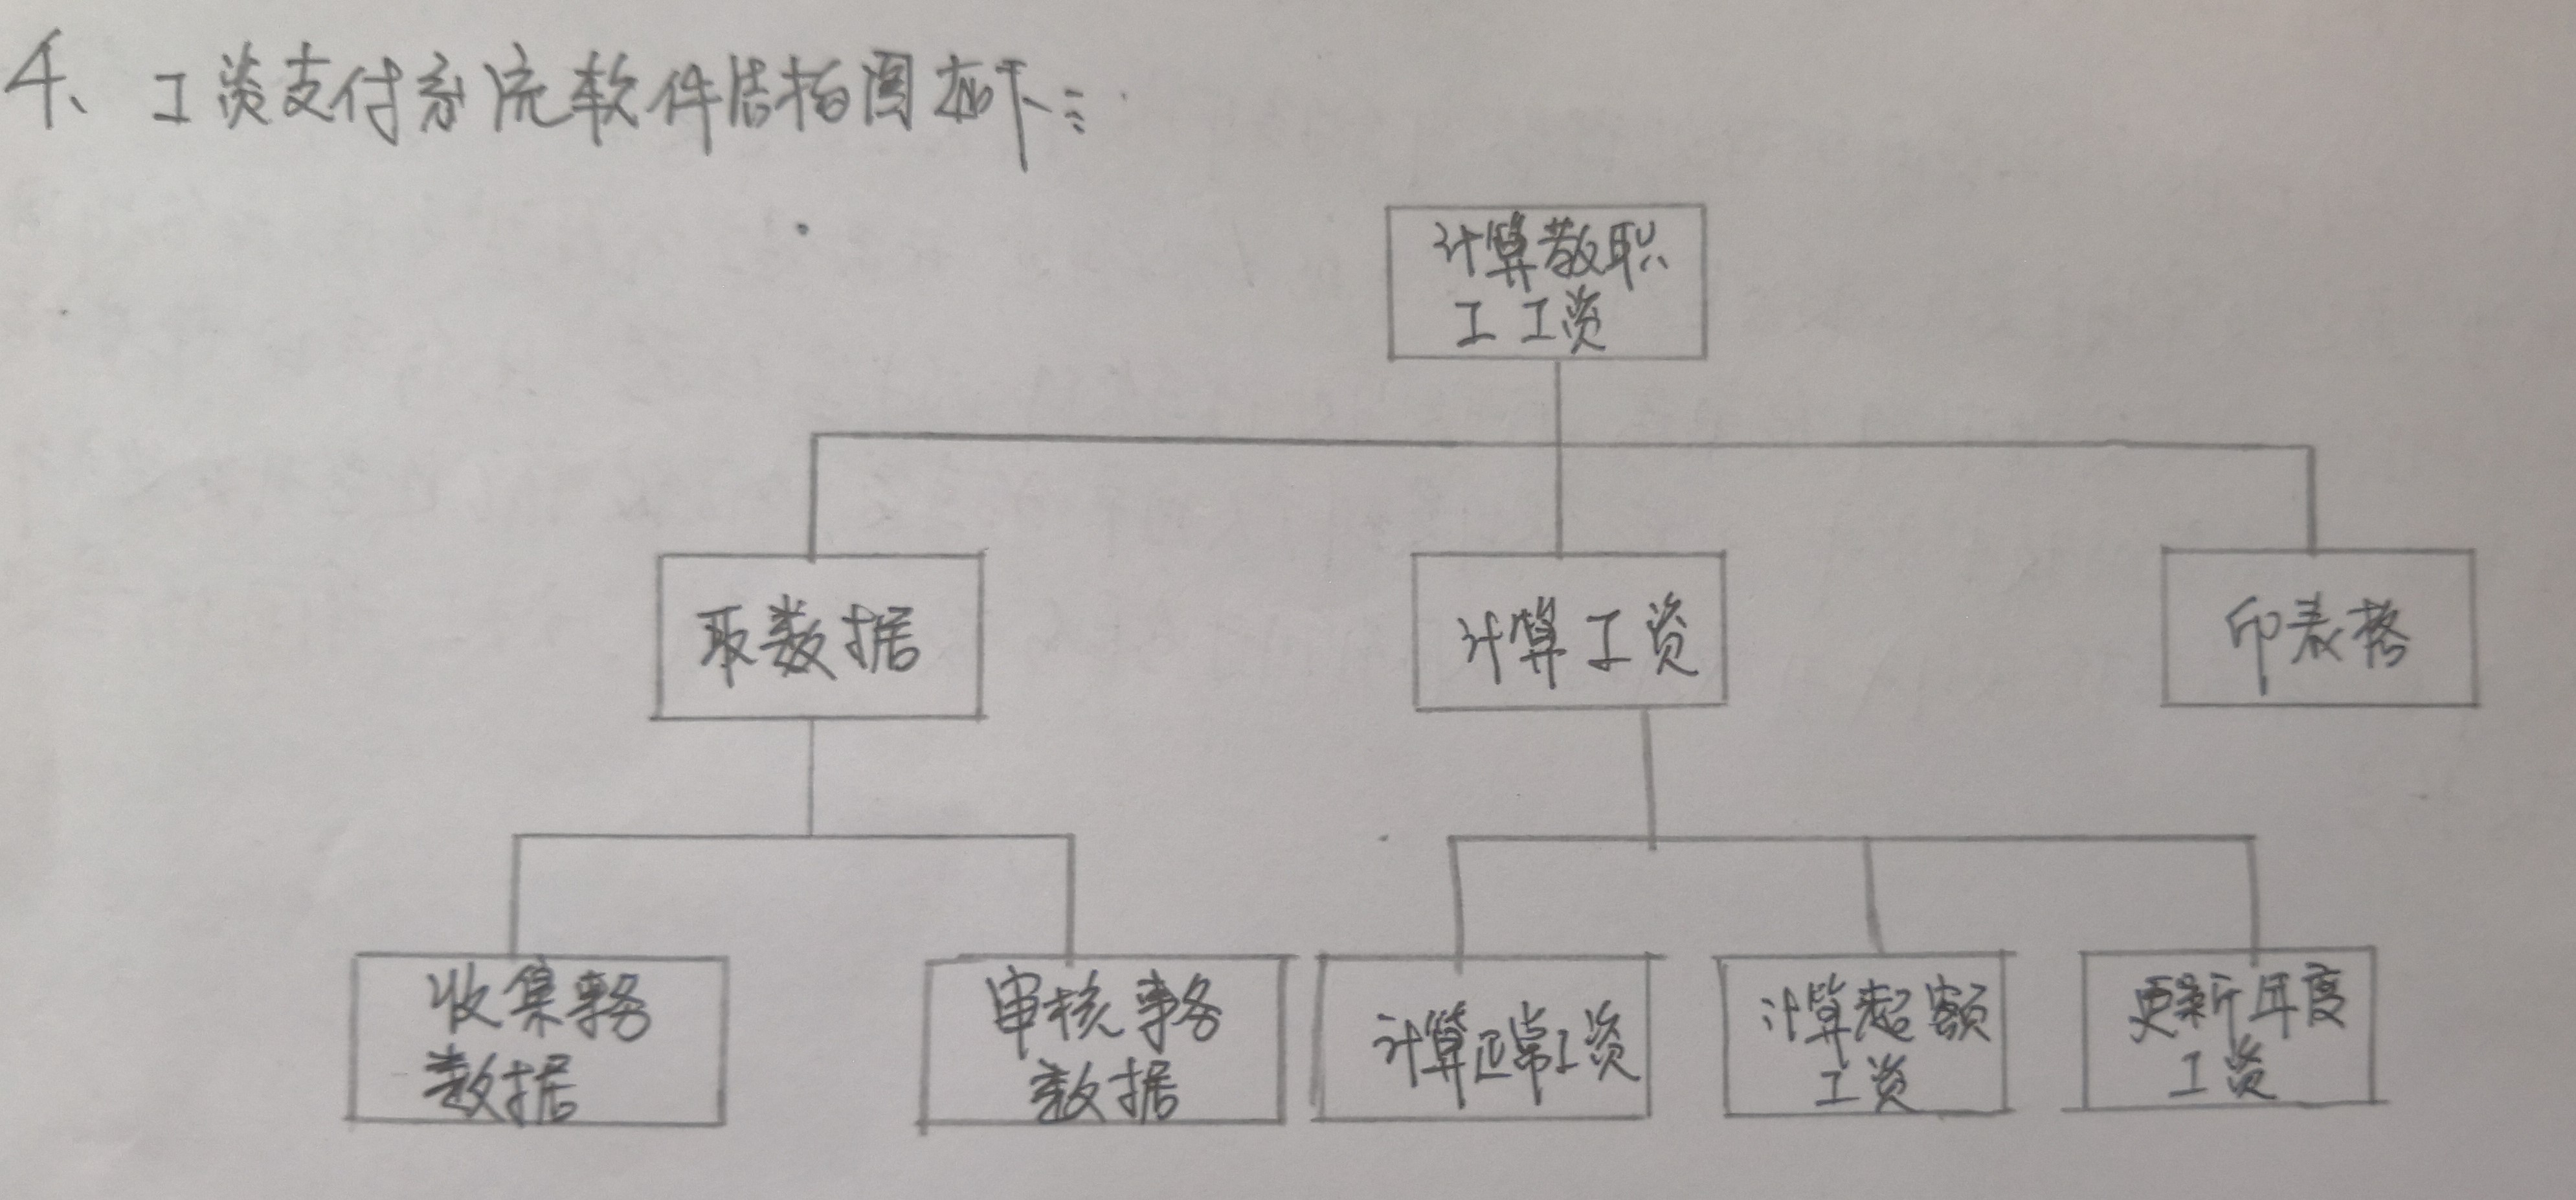 4、工资支付系统软件结构图如下:
计算教职
工工资
取数据
计算工资
印表格
收集事务
数据
审核事务
数据
计算正常工资
计算超额
工资
更新年度
工资